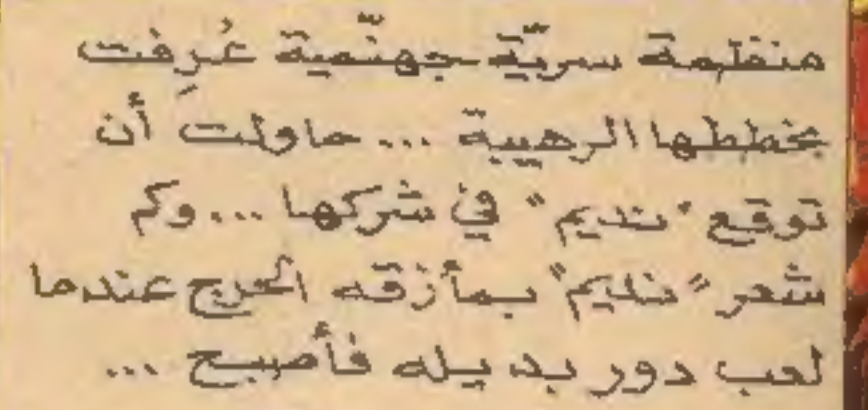 منظمة سريّة جهنّمية عُرِفت
بخططها الرهيبة ... حاولت أن
توقع "نديم" في شركها ... وكم
شعر "نديم" بمأزقه الحرج عندما
لعب دور بديله فأصبح ...